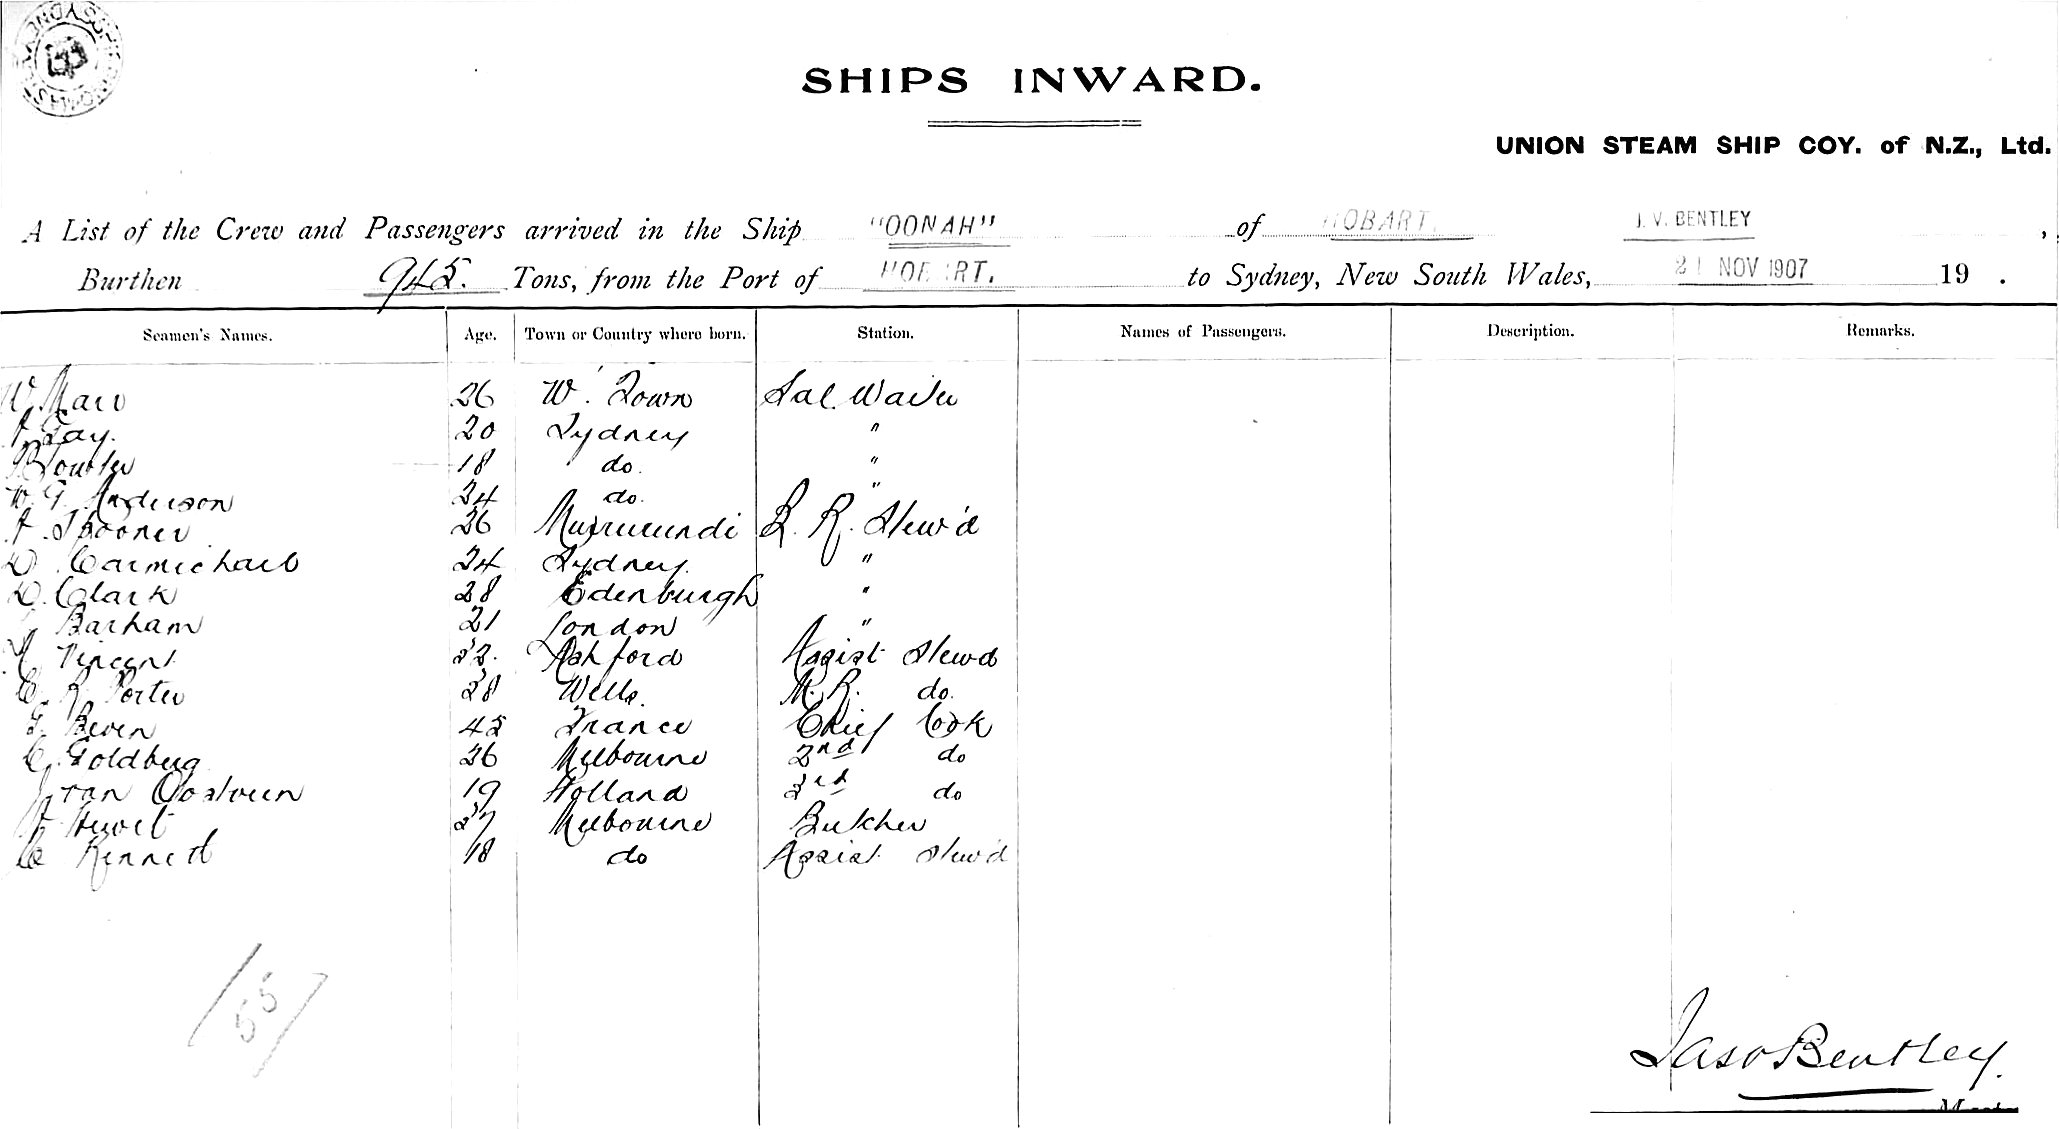 SHIPS INWARD.
UNION STEAM SHIP COY. of N.Z., Ltd.
A List of the Crew and Passengers arrived in the Ship "OONAH" of HOBART. J. V. BENTLEY ,
Burthen 945. Tons, from the Port of HOBART. to Sydney, New South Wales, 21 NOV 1907 19 .
Seamen's Names. Age. Town or Country where born. Station. Names of Passengers. Description. Remarks.
W. Marr 26 W. Town Sal. Waiter
Gay. 20 Sydney "
18 do. "
W. G. Anderson 24 do. "
A. Spooner 26 Murrurundi R. Stew'd
D. Carmichael 24 Sydney. "
D. Clark 28 Edenburgh "
Barham 21 London "
Vincent 32. Ashford Assist Stewd
E. R. Porter 28 Wells. M. R. do.
G. Beven 42 France Chief Cook
C. Goldberg 26 Melbourne 2nd do
J van Oostveen 19 Holland 3rd do
Hewet 27 Melbourne Butcher
Kennett 18 do Assist. Stew'd
55
Jas V Bentley.